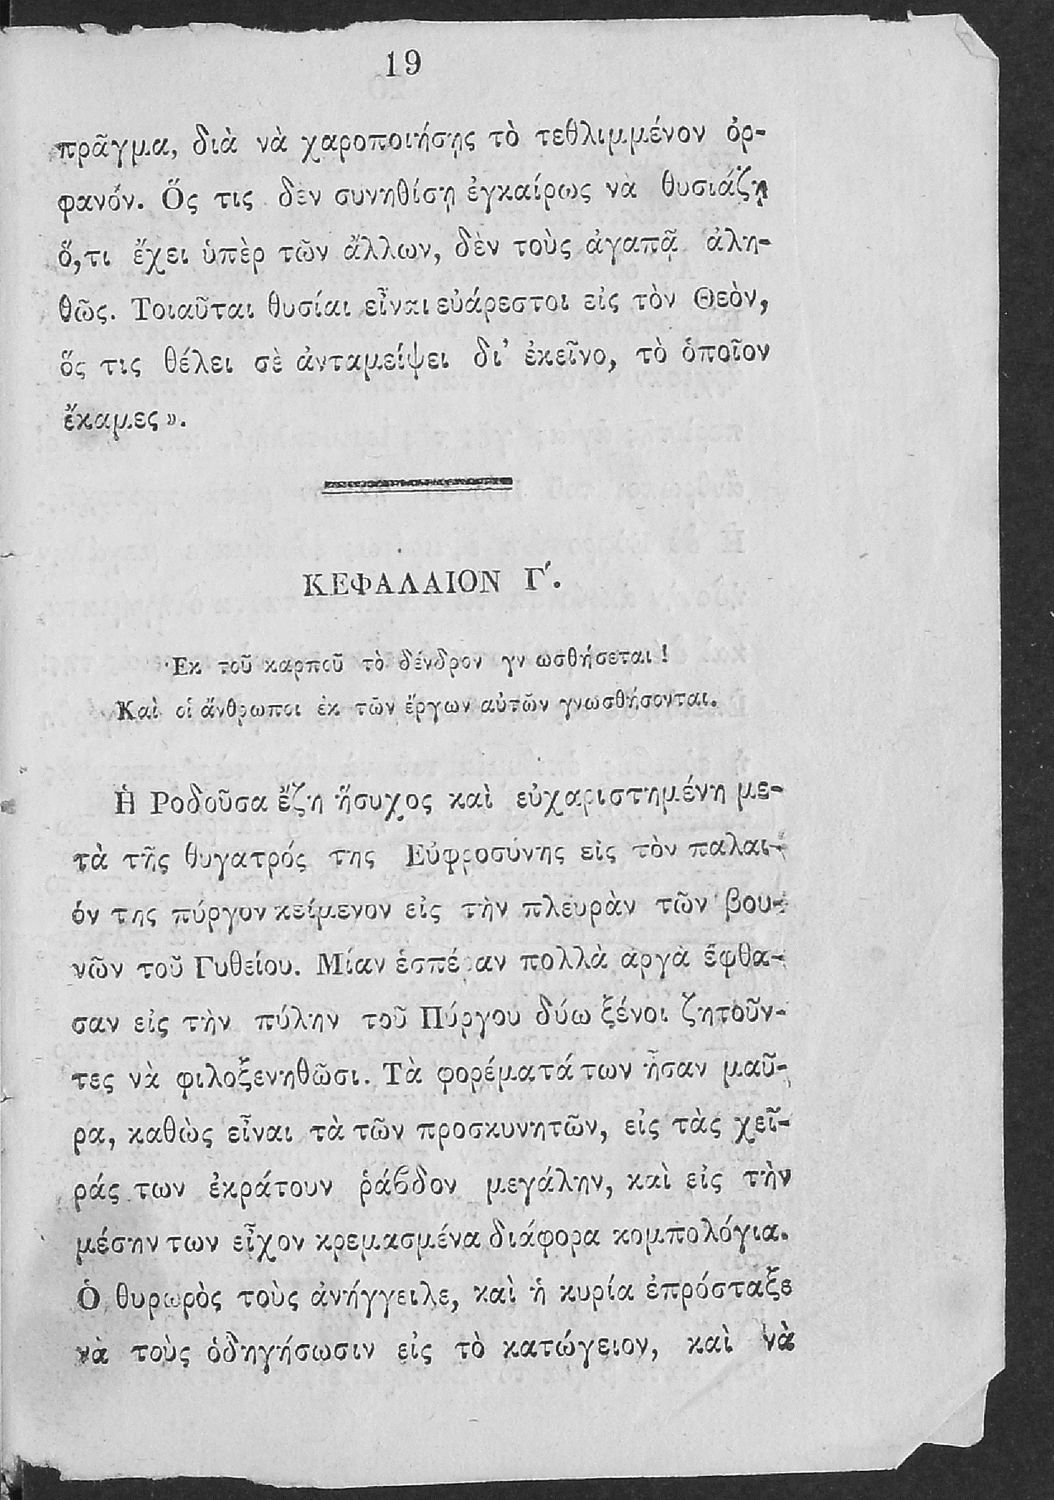 19
πρᾶγμα, διὰ νὰ χαροποιήσῃς τὸ τεθλιμμένον ὀρ-
φανόν. Ὅς τις δὲν συνηθίσῃ ἐγκαίρως νὰ θυσιάζῃ
ὅ,τι ἔχει ὑπὲρ τῶν ἄλλων, δὲν τοὺς ἀγαπᾷ ἀλη-
θῶς. Τοιαῦται θυσίαι εἶναι εὐάρεστοι εἰς τὸν Θεὸν,
ὅς τις θέλει σὲ ἀνταμείψει δι’ ἐκεῖνο, τὸ ὁποῖον
ἔκαμες».
ΚΕΦΑΛΑΙΟΝ Γ΄.
Ἐκ τοῦ καρποῦ τὸ δένδρον γν ωσθήσεται!
Καὶ οἱ ἄνθρωποι ἐκ τῶν ἔργων αὐτῶν γνωσθήσονται.
Ἡ Ροδοῦσα ἔζη ἥσυχος καὶ εὐχαριστημένη με-
τὰ τῆς θυγατρός της Εὐφροσύνης εἰς τὸν παλαι-
όν της πύργον κείμενον εἰς τὴν πλευρὰν τῶν βου-
νῶν τοῦ Γυθείου. Μίαν ἑσπέραν πολλὰ ἀργὰ ἔφθα-
σαν εἰς τὴν πύλην τοῦ Πύργου δύω ξένοι ζητοῦν-
τες νὰ φιλοξενηθῶσι. Τὰ φορέματά των ἦσαν μαῦ-
ρα, καθὼς εἶναι τὰ τῶν προσκυνητῶν, εἰς τὰς χεῖ-
ράς των ἐκράτουν ῥάϐδον μεγάλην, καὶ εἰς τὴν
μέσην των εἶχον κρεμασμένα διάφορα κομπολόγια.
Ὁ θυρωρὸς τοὺς ἀνήγγειλε, καὶ ἡ κυρία ἐπρόσταξε
νὰ τοὺς ὁδηγήσωσιν εἰς τὸ κατώγειον, καὶ νὰ